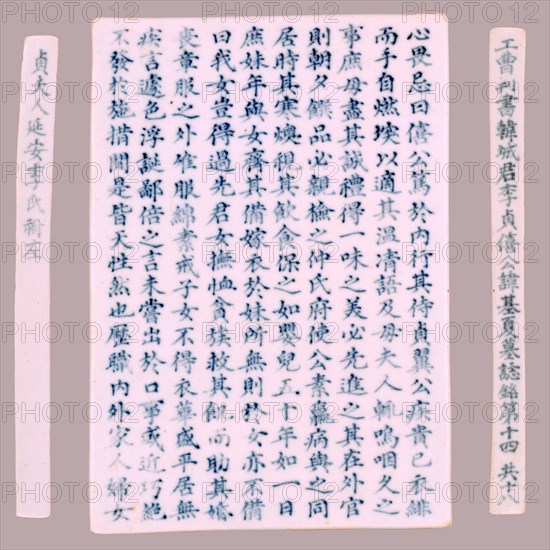 工曹判書韓城君李貞僖公諱基夏墓誌銘第十四 共十八
心畏忌曰僖公篤於內行其侍貞翼公疾貴已衣緋
而手自燃堗以適其溫凊語及母夫人輒嗚咽久之
事庶母盡其誠禮得一味之美必先進之其在外官
則朝夕饌品必親檢之仲氏府使公素羸病與之同
居時其寒燠視其飮食保之如嬰兒五十年如一日
庶妹年與女齊其備嫁衣於妹所無則於女亦不備
曰我女豈得過先君女撫恤貧族救其飢而助其婚
喪章服之外唯服綿素戒子女不得衣華盛平居無
疾言遽色浮誕鄙倍之言未嘗出於口事或近巧絶
不發於施措間是皆天性然也歷職內外家人婦女
貞夫人延安李氏祔左
PHOTO12